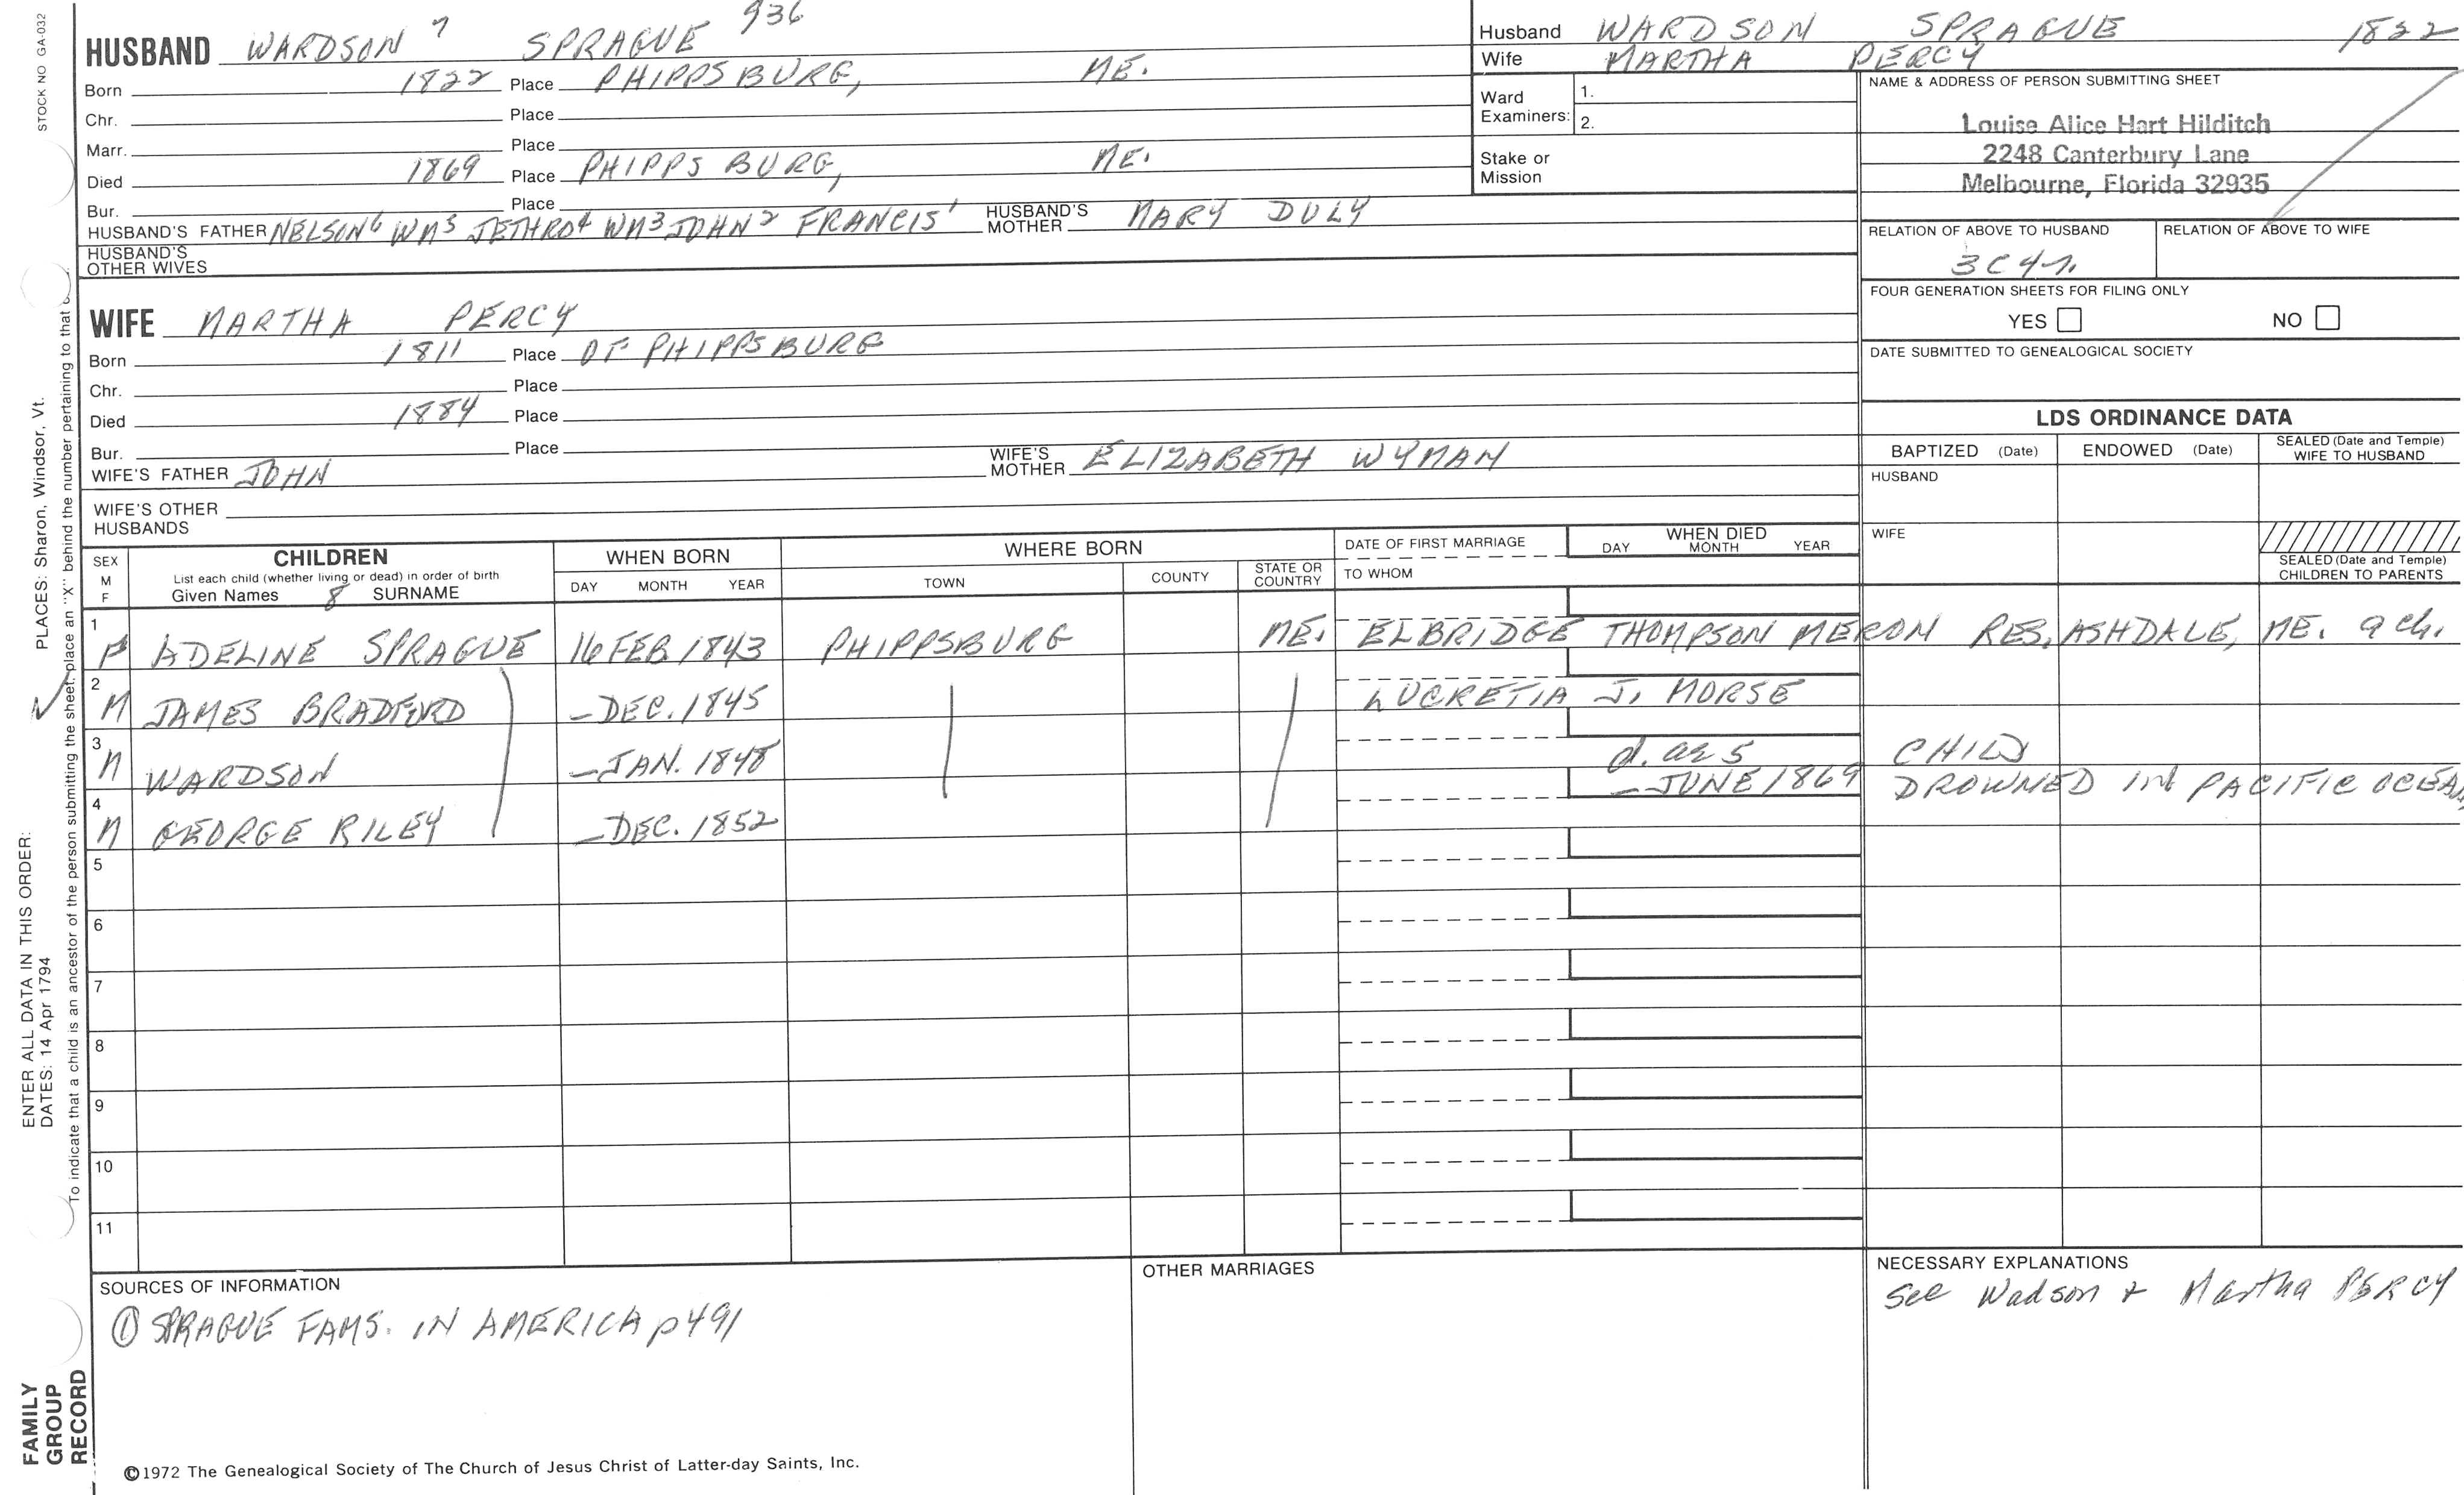 STOCK NO GA-032
HUSBAND WARDSON 7 SPRAGUE 936
Born 1822 Place PHIPPSBURG, ME.
Chr. Place
Marr. Place
Died 1869 Place PHIPPSBURG, ME.
Bur. Place
HUSBAND'S FATHER NELSON6 WM5 JETHRO4 WM3 JOHN2 FRANCIS1 HUSBAND'S MOTHER MARY DULY
HUSBAND'S OTHER WIVES
WIFE MARTHA PERCY
Born 1811 Place OF PHIPPSBURG
Chr. Place
Died 1884 Place
Bur. Place
WIFE'S FATHER JOHN WIFE'S MOTHER ELIZABETH WYMAN
WIFE'S OTHER HUSBANDS
Husband WARDSON SPRAGUE 1822
Wife MARTHA PERCY
Ward Examiners: 1.
2.
Stake or Mission
NAME & ADDRESS OF PERSON SUBMITTING SHEET
Louise Alice Hart Hilditch
2248 Canterbury Lane
Melbourne, Florida 32935
RELATION OF ABOVE TO HUSBAND RELATION OF ABOVE TO WIFE
3C4r.
FOUR GENERATION SHEETS FOR FILING ONLY
YES NO
DATE SUBMITTED TO GENEALOGICAL SOCIETY
LDS ORDINANCE DATA
BAPTIZED (Date) ENDOWED (Date) SEALED (Date and Temple) WIFE TO HUSBAND
HUSBAND
WIFE
SEALED (Date and Temple) CHILDREN TO PARENTS
SEX M F CHILDREN WHEN BORN WHERE BORN DATE OF FIRST MARRIAGE WHEN DIED
List each child (whether living or dead) in order of birth
Given Names 8 SURNAME DAY MONTH YEAR TOWN COUNTY STATE OR COUNTRY TO WHOM DAY MONTH YEAR
1 F ADELINE SPRAGUE 16 FEB. 1843 PHIPPSBURG ME. ELBRIDGE THOMPSON MERON RES. ASHDALE, ME. 9 ch.
2 M JAMES BRADFORD –DEC. 1845 LUCRETIA J. MORSE
3 M WARDSON –JAN. 1848 d. as CHILD
4 M GEORGE RILEY –DEC. 1852 –JUNE 1869 DROWNED IN PACIFIC OCEAN
5
6
7
8
9
10
11
SOURCES OF INFORMATION
① SPRAGUE FAMS. IN AMERICA p491
OTHER MARRIAGES
NECESSARY EXPLANATIONS
See Wadson + Martha PERCY
©1972 The Genealogical Society of The Church of Jesus Christ of Latter-day Saints, Inc.
FAMILY GROUP RECORD
ENTER ALL DATA IN THIS ORDER:
DATES: 14 Apr 1794
PLACES: Sharon, Windsor, Vt.
To indicate that a child is an ancestor of the person submitting the sheet, place an "X" behind the number pertaining to that